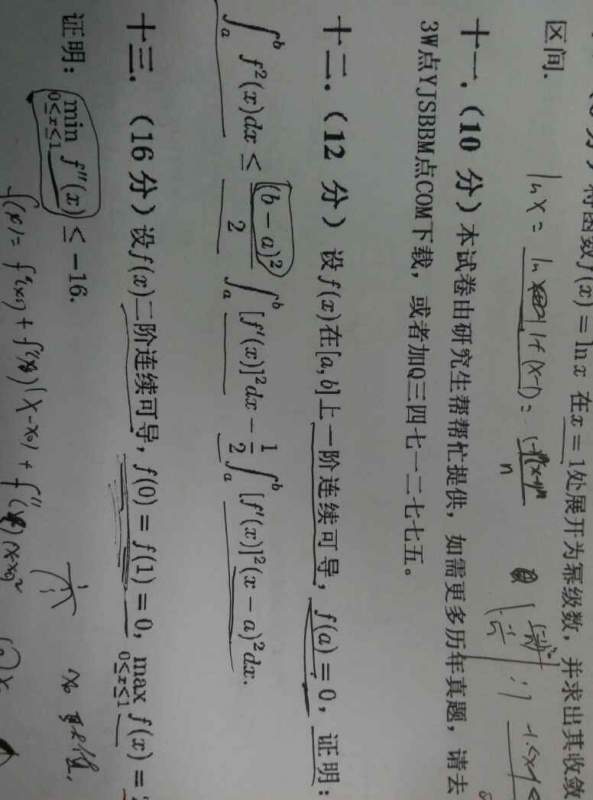 将函数f(x) = ln x 在x = 1处展开为幂级数, 并求出其收敛
区间.
ln x = ln 1+(x-1) =
十一. (10 分) 本试卷由研究生帮帮忙提供, 如需更多历年真题, 请去
3W点YJSBBM点COM下载, 或者加Q三四七一二七七五。
十二. (12 分) 设f(x)在[a, b]上一阶连续可导, f(a) = 0, 证明:
∫_a^b f²(x)dx ≤ (b − a)²/2 ∫_a^b [f′(x)]²dx − 1/2 ∫_a^b [f′(x)]²(x − a)²dx.
十三. (16 分) 设f(x)二阶连续可导, f(0) = f(1) = 0, max_{0≤x≤1} f(x) =
证明: min_{0≤x≤1} f″(x) ≤ −16.